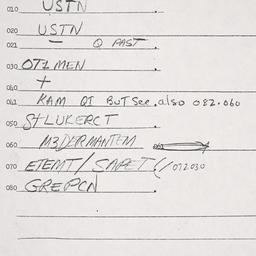 010 USTN
020 USTN
021 Q PAST
030 OTZMEN
040 +
041 KAM QI BUT See also 082.060
050 StLUKERCT
060 M3DERMANTEM
070 ETEMT/SAPET (/072.030
080 GREPCN